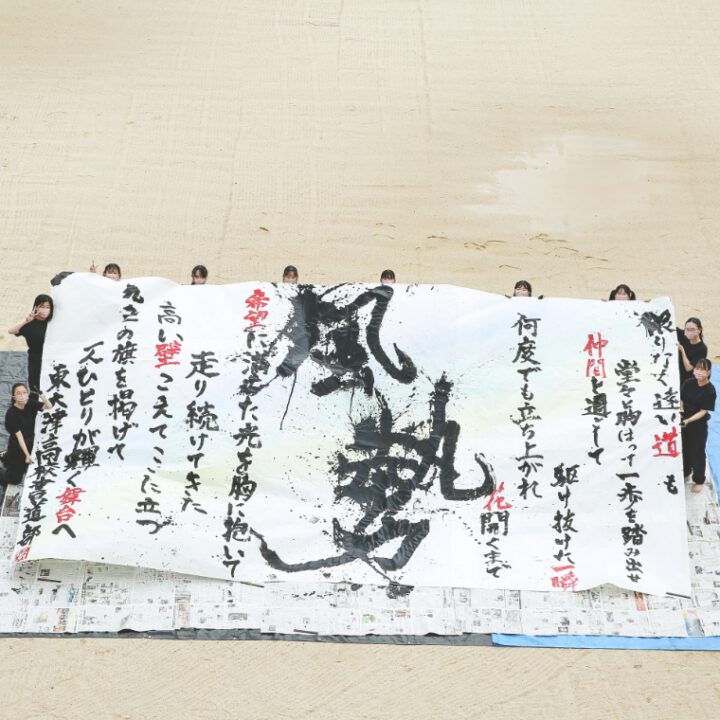 限りなく遠い道も
堂々胸はって一歩を踏み出せ
仲間と過して
駆け抜けた一瞬
何度でも立ち上がれ
花開くまで
風勢
希望に満ちた光を胸に抱いて
走り続けてきた
高い壁こえてここに立つ
の旗を掲げて
一人ひとりが輝く舞台へ
東大津高校書道部